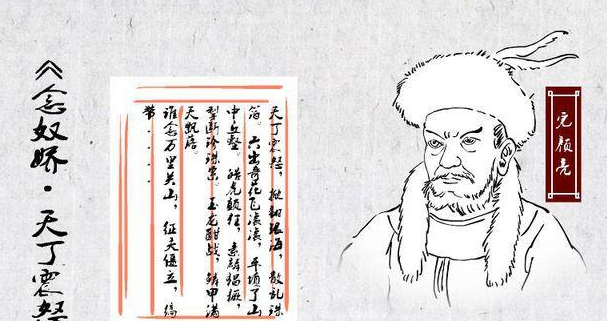 《念奴娇·天丁震怒
天丁震怒，掀翻银海，散乱珠
箔。六出奇花飞滚滚，平填了山
中丘壑。皓虎颠狂，素麟猖獗，
掣断珍珠索。玉龙酣战，鳞甲满
天飘落。
谁念万里关山，征夫僵立，缟
带....
完颜亮